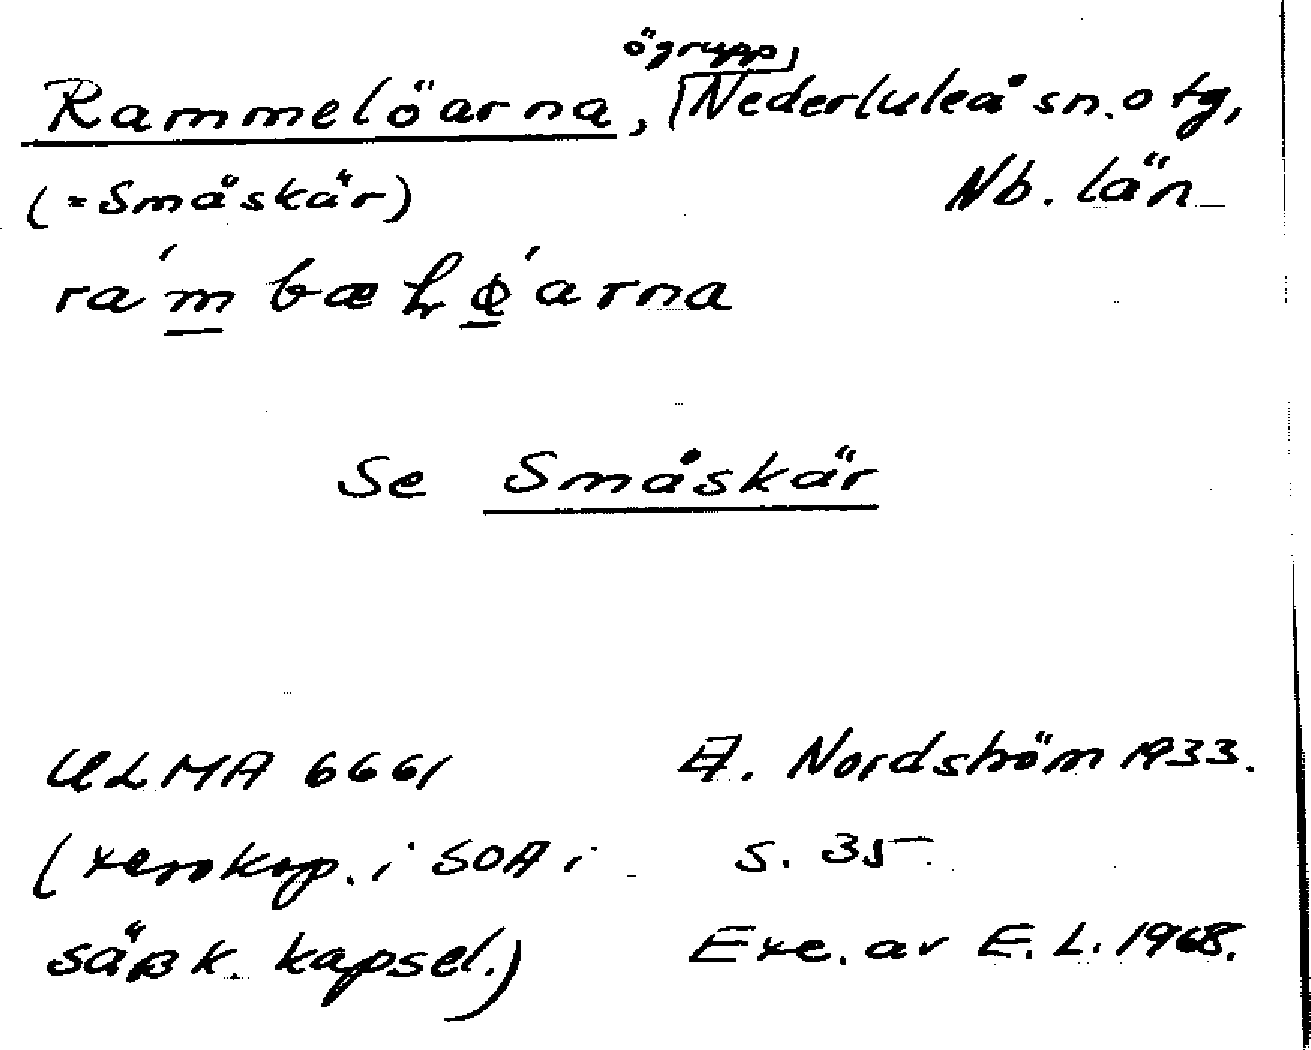 ögrupp,
Rammelöarna, Nederluleå sn. o tg,
(= Småskär) Nb. län
Se Småskär
ULMA 6661 A. Nordström 1933.
(xerokop. i SOA i s. 35
särsk. kapsel.) Exc. av E. L. 1968.